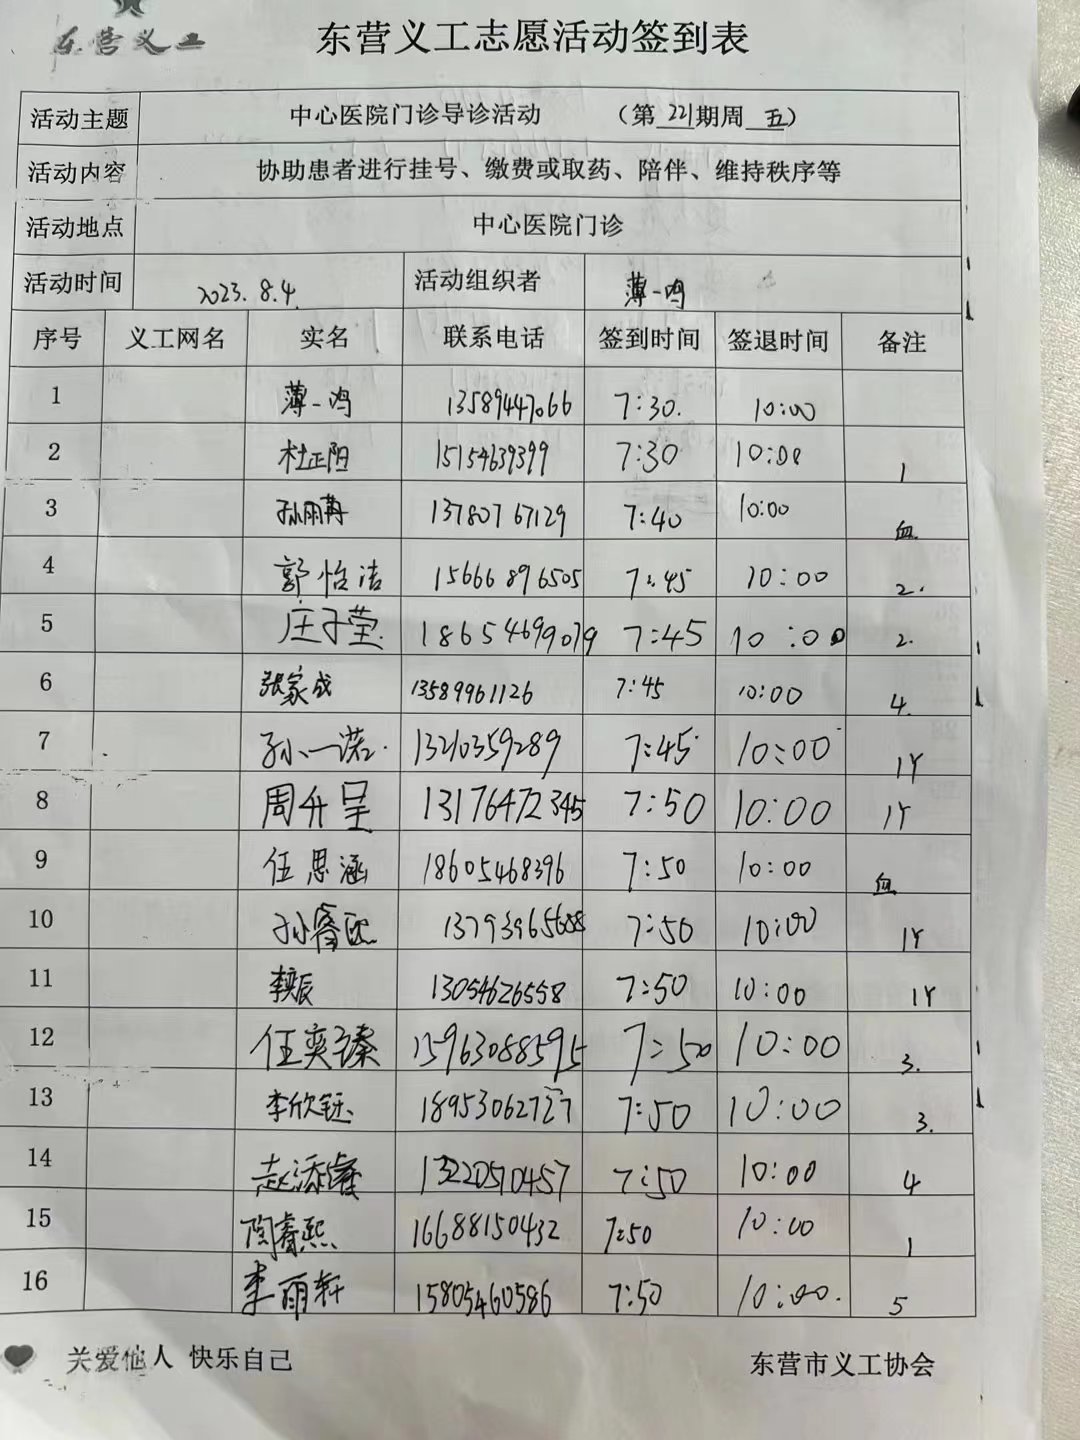 东营义工
东营义工志愿活动签到表
活动主题 中心医院门诊导诊活动 (第221期周五)
活动内容 协助患者进行挂号、缴费或取药、陪伴、维持秩序等
活动地点 中心医院门诊
活动时间 2023.8.4. 活动组织者 薄一鸣
序号 义工网名 实名 联系电话 签到时间 签退时间 备注
1 薄一鸣 13589447066 7:30. 10:00
2 杜正阳 15154639399 7:30 10:00 1
3 13780767129 7:40 10:00 血
4 郭怡洁 15666896505 7:45 10:00 2.
5 庄子莹. 18654699079 7:45 10:00 2.
6 张家成 13589961126 7:45 10:00 4.
7 孙一诺. 13210359289 7:45 10:00 1Y
8 周升呈 13176472345 7:50 10:00 1Y
9 任思涵 18605468396 7:50 10:00 血
10 孙睿熙 7:50 10:00 1Y
11 13054626558 7:50 10:00 1Y
12 任奕臻 15963088595 7:50 10:00 3.
13 李欣钰 18953062727 7:50 10:00 3.
14 赵添睿 13220570457 7:50 10:00 4
15 陶睿熙 16688150432 7:50 10:00 1
16 李雨轩 15805460586 7:50 10:00. 5
关爱他人 快乐自己 东营市义工协会